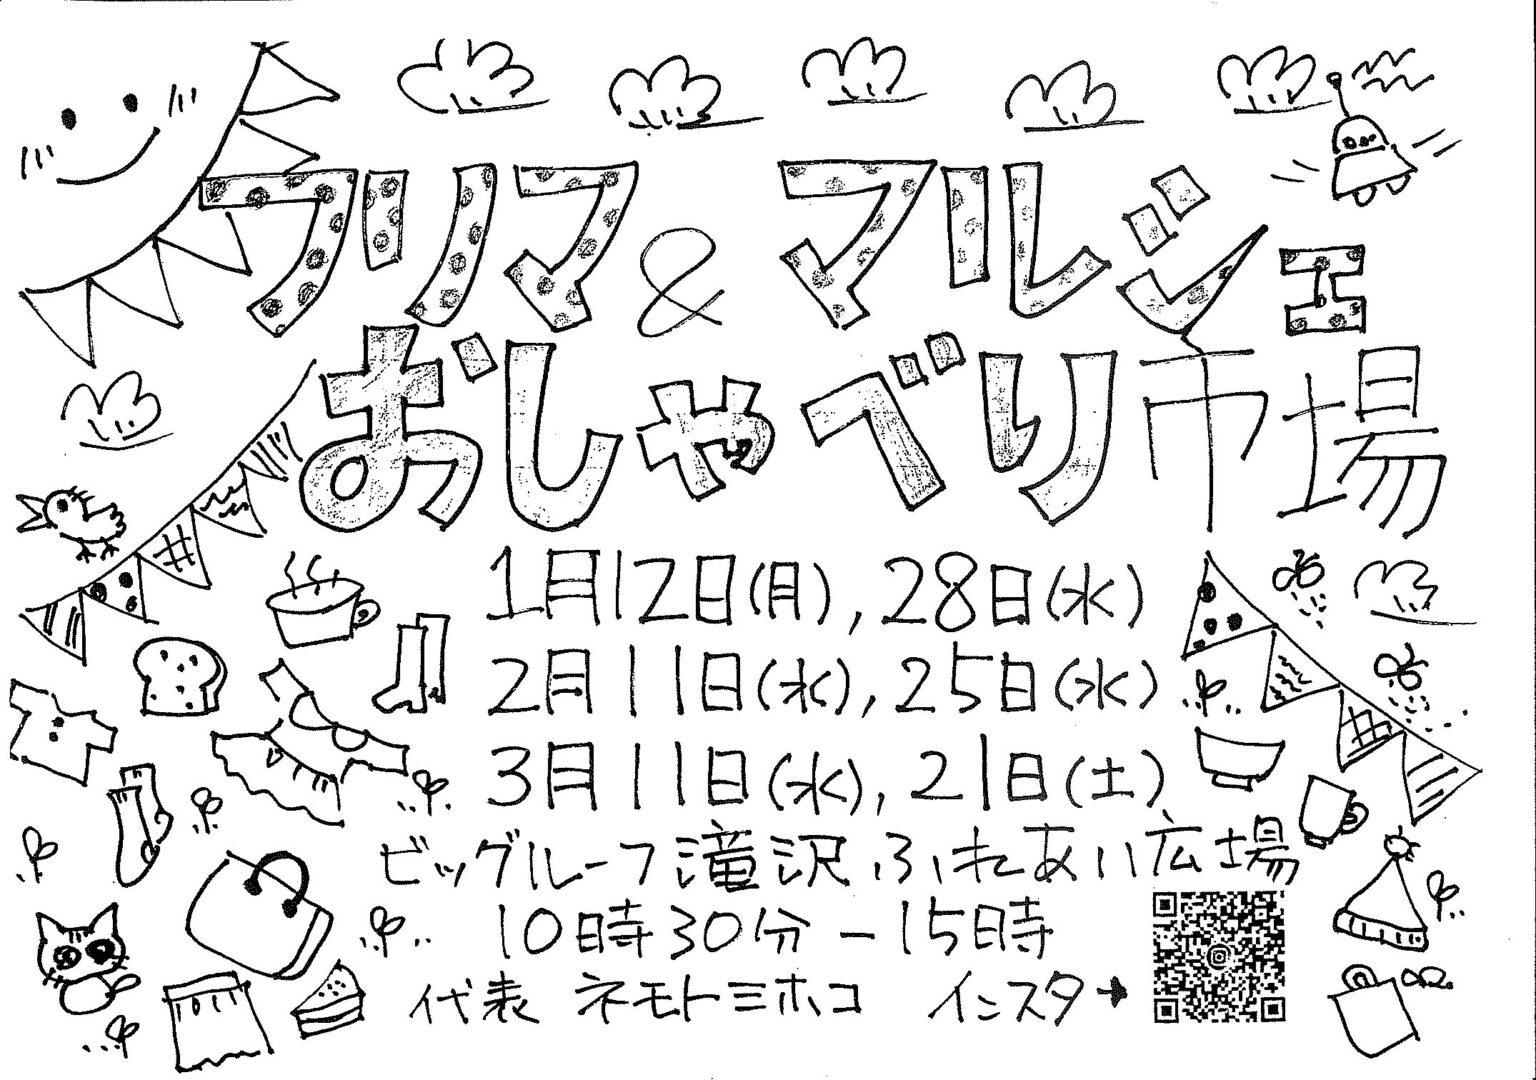 フリマ & マルシェ
おしゃべり市場
1月12日(月), 28日(水)
2月11日(水), 25日(水)
3月11日(水), 21日(土)
ビッグルーフ滝沢 ふれあい広場
10時30分ー15時
代表 ネモトミホコ インスタ→